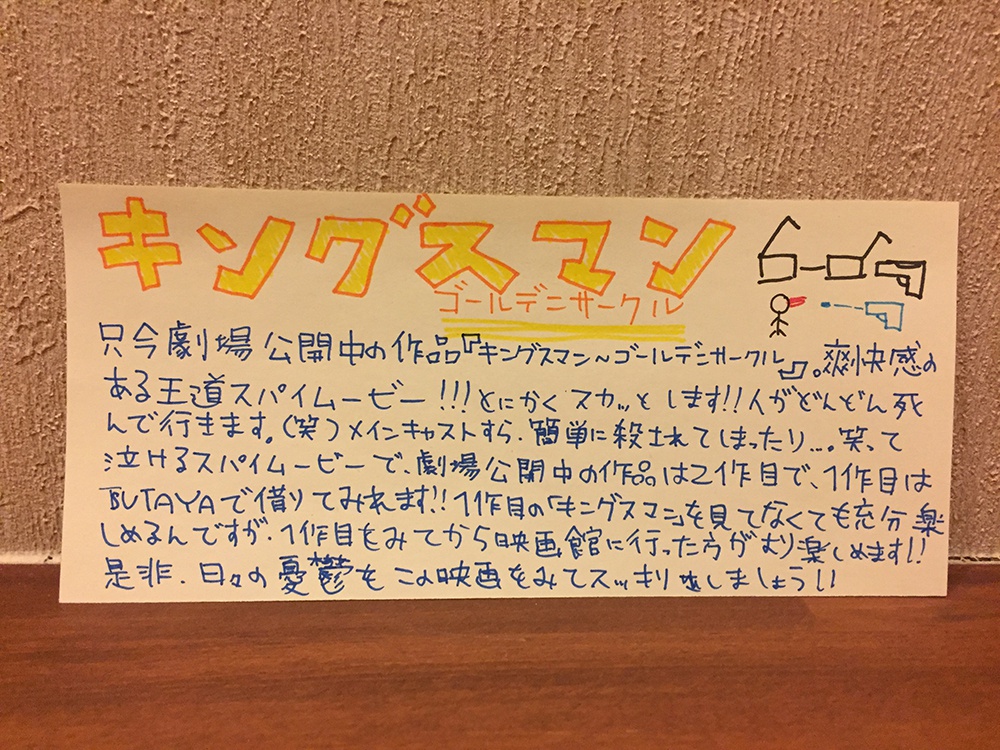 キングスマン
ゴールデンサークル
只今劇場公開中の作品『キングスマン~ゴールデンサークル』。爽快感の
ある王道スパイムービー!!!とにかくスカッとします!!人がどんどん死
んで行きます。(笑)メインキャストすら、簡単に殺されてしまったり...。笑って
泣けるスパイムービーで、劇場公開中の作品は2作目で、1作目は
TSUTAYAで借りてみれます!!1作目の「キングスマン」を見てなくても充分楽
しめるんですが、1作目をみてから映画館に行った方がより楽しめます!!
是非、日々の憂鬱をこの映画をみてスッキリしましょう!!